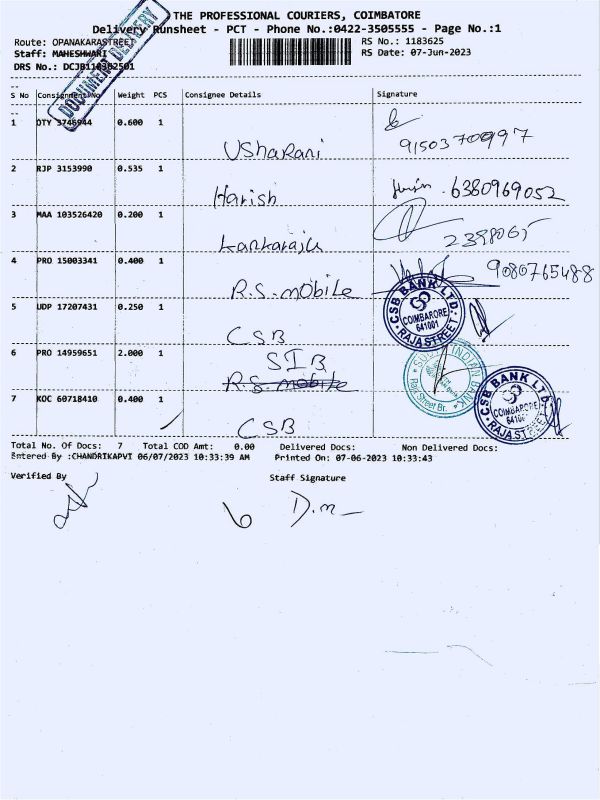 THE PROFESSIONAL COURIERS, COIMBATORE
Delivery Runsheet - PCT - Phone No.:0422-3505555 - Page No.:1
Route: OPANAKARASTREET
RS No.: 1183625
Staff: MAHESHWARI
RS Date: 07-Jun-2023
DRS No.: DCJB110382501
DOCUMENT DELIVERY
S No Consignment No Weight PCS Consignee Details Signature
1 OTY 3746944 0.600 1 UshaRani 91503700997
2 RJP 3153990 0.535 1 Harish 6380969052
3 MAA 103526420 0.200 1 2398065
4 PRO 15003341 0.400 1 R.S. mobile 9080765488
CSB BANK LTD. COIMBATORE 641001 RAJA STREET
5 UDP 17207431 0.250 1 CSB
6 PRO 14959651 2.000 1 SIB
R.S. mobile
SOUTH INDIAN BANK Raja Street Br.
7 KOC 60718410 0.400 1 CSB
CSB BANK LTD. COIMBATORE RAJA STREET
Total No. Of Docs: 7 Total COD Amt: 0.00 Delivered Docs: Non Delivered Docs:
Entered By :CHANDRIKAPVI 06/07/2023 10:33:39 AM Printed On: 07-06-2023 10:33:43
Verified By Staff Signature
6 D.m